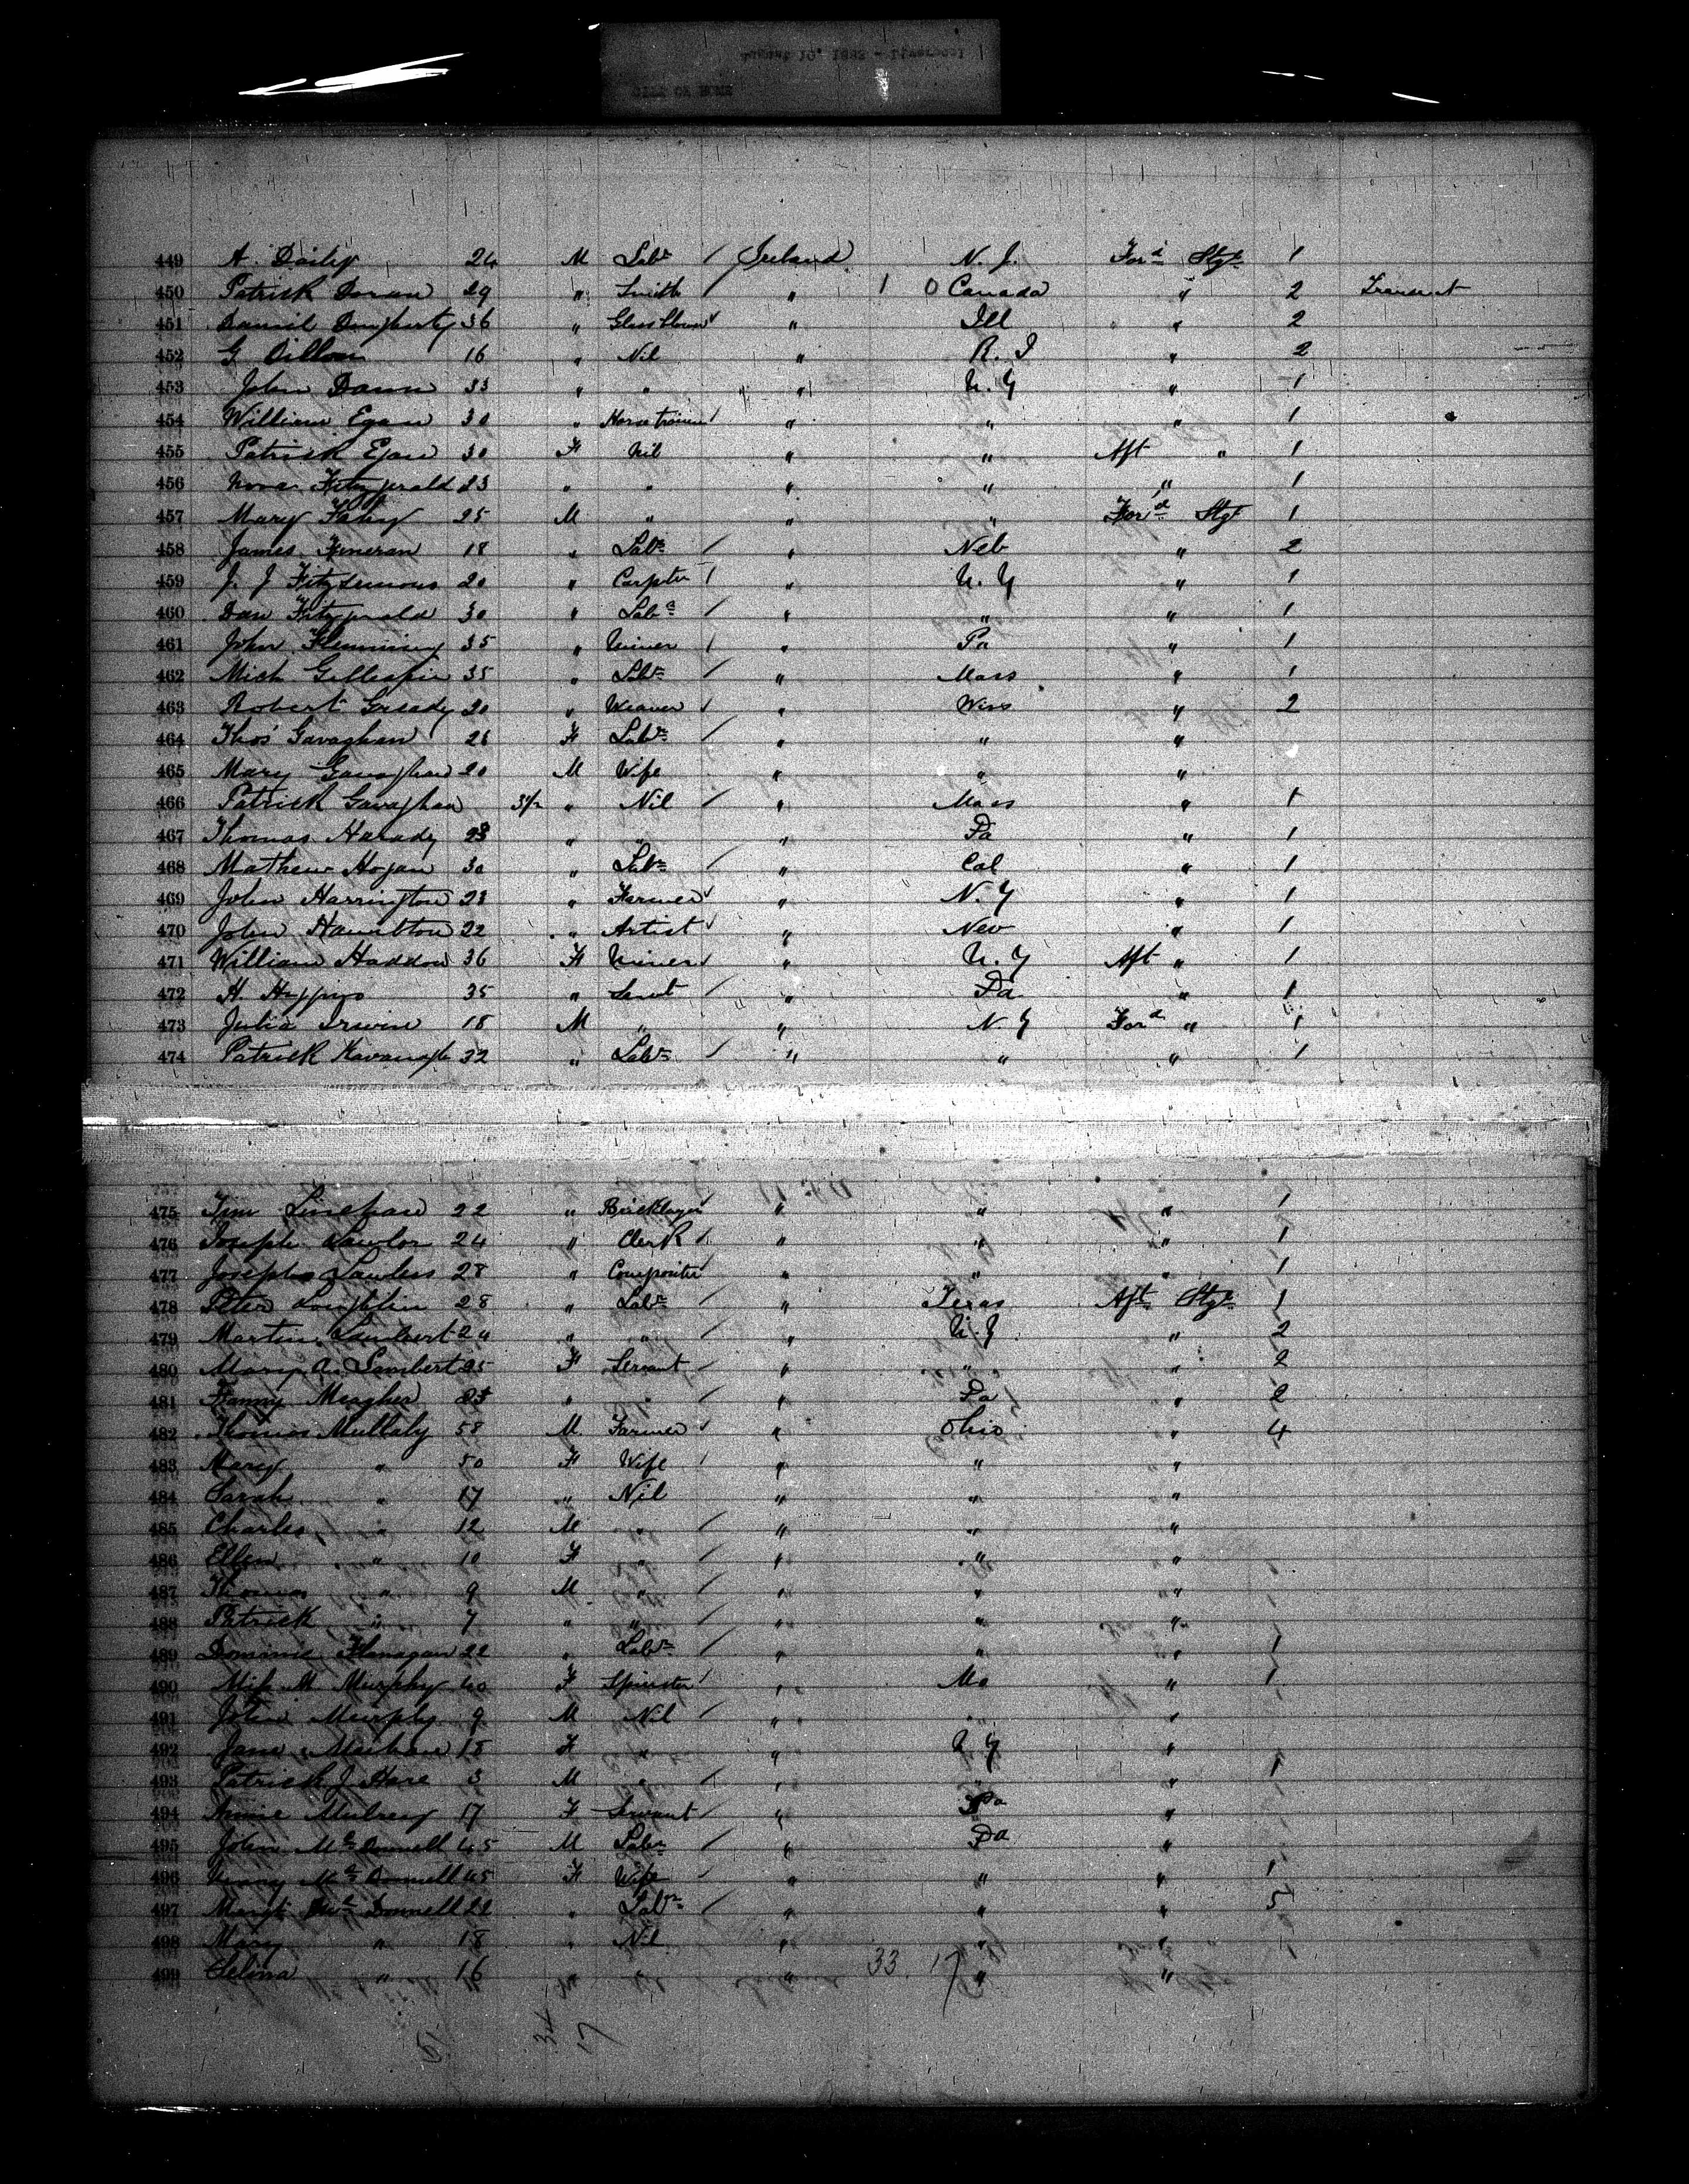 August 10, 1882 - Liverpool
CITY OF ROME
449 A. Daily 24 M Labr / Ireland N. J. Ford Stge 1
450 Patrick Doran 29 " Smith / " 1 0 Canada " 2 Transit
451 Daniel Dougherty 36 " Glass blower / " Ill " 2
452 G Dillon 16 " Nil " R. I " 2
453 John Dann 33 " " " N. Y " 1
454 William Egan 30 " Horse trainer / " " " 1
455 Patrick Egan 30 F Nil " " Aft " 1
456 Nora Fitzgerald 23 " " " " " 1
457 Mary Fahy 25 M " " " Ford Stge 1
458 James Fineran 18 " Labr / " Neb " 2
459 J. J Fitzsimons 20 " Carpter / " N. Y " 1
460 Dan Fitzgerald 30 " Labr / " " " 1
461 John Flemming 35 " Miner / " Pa " 1
462 Mich Gillespie 35 " Labr / " Mass " 1
463 Robert Gready 20 " Weaver / " Wiss " 2
464 Thos Gavaghan 26 F Labr / " " "
465 Mary Gavaghan 20 M Wife " " "
466 Patrick Gavaghan 3/12 " Nil / " Mass " 1
467 Thomas Harady 23 " " " Pa " 1
468 Mathew Hogan 30 " Labr / " Cal " 1
469 John Harrington 23 " Farmer / " N. Y " 1
470 John Hamilton 22 " Artist / " Nev " 1
471 William Haddon 36 F Miner / " N. Y Aft " 1
472 H. Higgins 35 " Servt / " Pa " 1
473 Julia Irwin 18 M " " N. Y Ford " 1
474 Patrick Kavanagh 32 " Labr / " " " 1
475 Tim Linehan 22 " Bricklayer / " " " 1
476 Joseph Lawlor 24 " Clerk / " " " 1
477 Joseph Lawless 28 " Compositer / " " " 1
478 Peter Loughlin 28 " Labr / " Texas Aft Stge 1
479 Martin Lambert 24 " " / " N. Y " 2
480 Mary A. Lambert 25 F Servant / " " " 2
481 Fanny Meagher " " / " Pa " 2
482 Thomas Mullaly 58 M Farmer / " Ohio " 4
483 Mary " 50 F Wife / " " "
484 Sarah " 17 " Nil " " "
485 Charles " 12 M " / " " "
486 Ellen " 10 F " / " " "
487 Thomas " 9 M " / " " "
488 Patrick " 7 " " / " " "
489 Dominic Flanagan 22 " Labr / " " " 1
490 Miss M Murphy 40 F Spinster / " Mo " 1
491 John Murphy 9 M Nil / " " "
492 Jane Meehan 18 F " " N Y "
493 Patrick J Hare 3 M " / " " " 1
494 Annie Mulrey 17 F Servant / " Pa "
495 John McDonnell 45 M Labr / " Pa "
496 McDonnell 45 F Wife / " " " 1
497 Margt McDonnell 22 " Labr / " " " 5
498 Mary " 18 " Nil " " "
499 Selina " 16 " " " 33. 17 " "
34
17